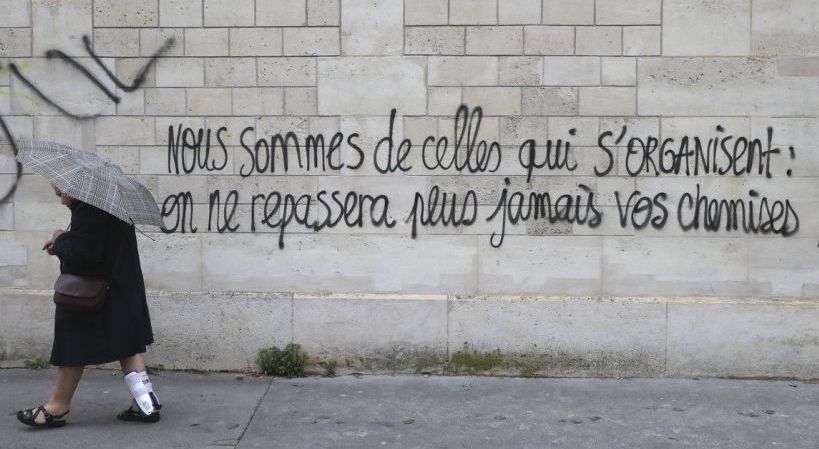 Nous sommes de celles qui s'ORGANisent :
on ne repassera plus jamais vos chemises